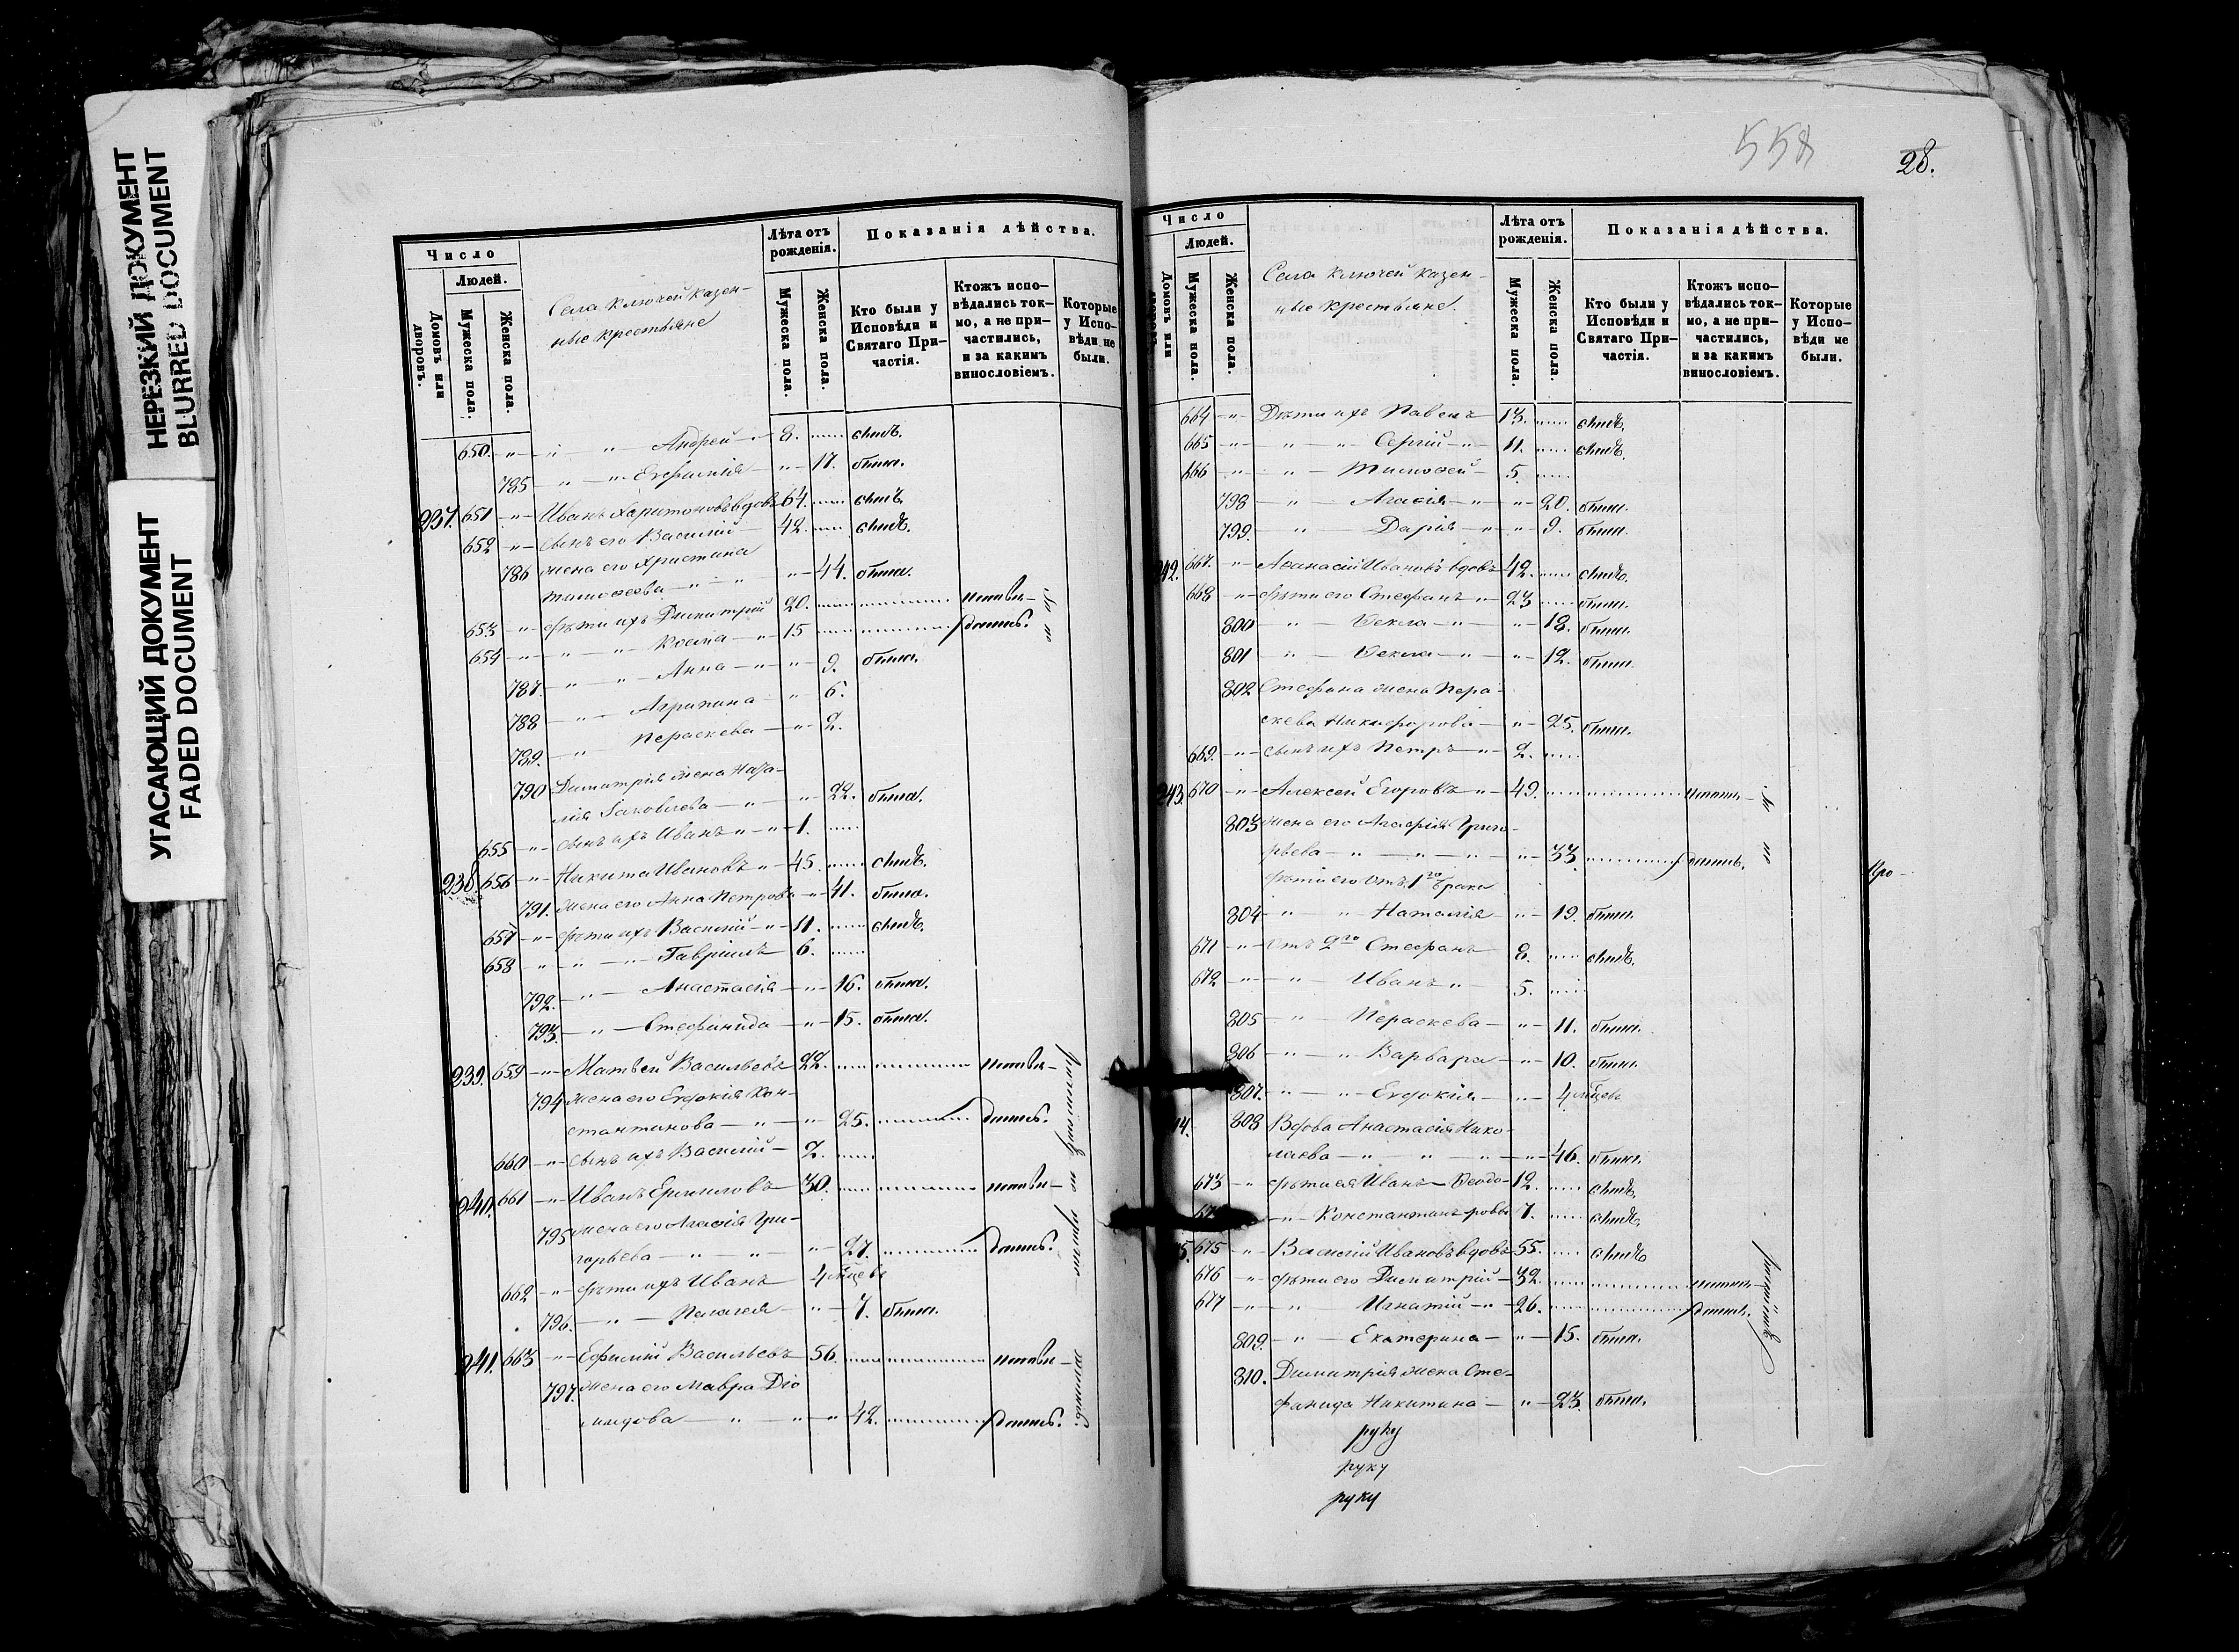 НЕРЕЗКИЙ ДОКУМЕНТ
BLURRED DOCUMENT
УГАСАЮЩИЙ ДОКУМЕНТ
FADED DOCUMENT
Число
Людей.
Домовъ или дворовъ.
Мужеска пола.
Женска пола.
Села Ключей казен-
ные крестьяне
Лѣта отъ рожденія.
Мужеска пола.
Женска пола.
Показанія дѣйства.
Кто были у Исповѣди и Святаго При-частія.
Ктожъ испо-вѣдались ток-мо, а не при-частились, и за какимъ винословіемъ.
Которые у Испо-вѣди не были.
650. -"- " -"- Андрей -"- 8. былъ.
785 " -"- Евфимія -"- 17. была.
237. 651 -"- Иванъ Харитоновъ вдовъ 64. былъ.
652 -"- сынъ его Василій 42. былъ.
786 жена его Христина
Тимофеева -"- " -"- 44. была.
653 -"- дѣти ихъ Димитрій 20.
654 -"- " -"- Косма -"- 15
787 -"- " Анна -"- -"- 9. была.
788 -"- Агрипина -"- 6.
789. -"- Пераскева -"- 2.
790 Димитрія жена Ната-
лія Іаковлева -"- -"- 22. была.
655 -"- сынъ ихъ Иванъ -"- -"- 1.
238. 656 -"- Никита Ивановъ -"- 45. былъ.
791. жена его Анна Петрова -"- 41. была.
657 -"- дѣти ихъ Василій -"- 11. былъ.
658 -"- " -"- Гавріилъ 6.
792. -"- Анастасія -"- 16. была.
793. -"- Стефанида -"- 15. была.
239. 659 -"- Матвѣй Васильевъ 22.
794 жена его Евдокія Кон-
стантинова -"- -"- 25.
660 -"- сынъ ихъ Василій 2.
240. 661 -"- Иванъ Ермиловъ 30.
795 жена его Агафія Гри-
горьева -"- " -"- 27.
662 -"- дѣти ихъ Иванъ 4
796. -"- Пелагея -"- 7. была.
241. 663 -"- Ефимій Васильевъ 56.
797. жена его Мавра Діо
мидова -"- " -"- 42.
558
28.
Число
Людей.
Домовъ или
Мужеска пола.
Женска пола.
Села Ключей казен-
ные крестьяне.
Лѣта отъ рожденія.
Мужеска пола.
Женска пола.
Показанія дѣйства.
Кто были у Исповѣди и Святаго При-частія.
Ктожъ испо-вѣдались ток-мо, а не при-частились, и за какимъ винословіемъ.
Которые у Испо-вѣди не были.
664 -"- Дѣти ихъ Павелъ 13. былъ.
665 -"- " -"- Сергій -"- 11. былъ.
666 -"- " -"- Тимофей 5.
798 -"- Агафія -"- -"- 20. была.
799. -"- Дарія -"- -"- 9. была.
242. 667. -"- Афанасій Ивановъ вдовъ 42. былъ.
668 -"- дѣти его Стефанъ -"- 23
800 -"- Фекла -"- -"- 18. была.
801 -"- Фекла -"- -"- 12. была.
802 Стефана жена Пера-
скева Никифорова -"- 25. была.
669. -"- сынъ ихъ Петръ -"- 2.
243. 670 -"- Алексей Егоровъ -"- 49.
803 жена его Агафія Григо-
рьева -"- -"- -"- 33.
дѣти его отъ 1го брака
804 -"- " Наталія -"- 19. была.
671 -"- отъ 2го Стефанъ 8. былъ.
672 -"- " -"- Иванъ -"- 5.
805 -"- Пераскева -"- 11. была.
806 -"- Варвара -"- 10. была.
807. -"- Евдокія -"- 4
808 Вдова Анастасія Нико-
лаева -"- " -"- 46. была.
673 -"- дѣти ея Иванъ Феодо- 12. былъ.
-"- Константинъ ровы 7. былъ.
675 -"- Василій Ивановъ вдовъ 55. былъ
676 -"- дѣти его Димитрій 32.
677 -"- " Игнатій -"- 26.
809. -"- Екатерина -"- 15. была.
810. Димитрія жена Сте-
фанида Никитина -"- 23. была.
руку
руку
руку